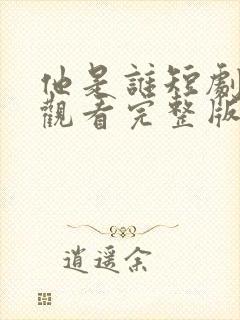 他是誰短劇
觀看完整版
逍遥余